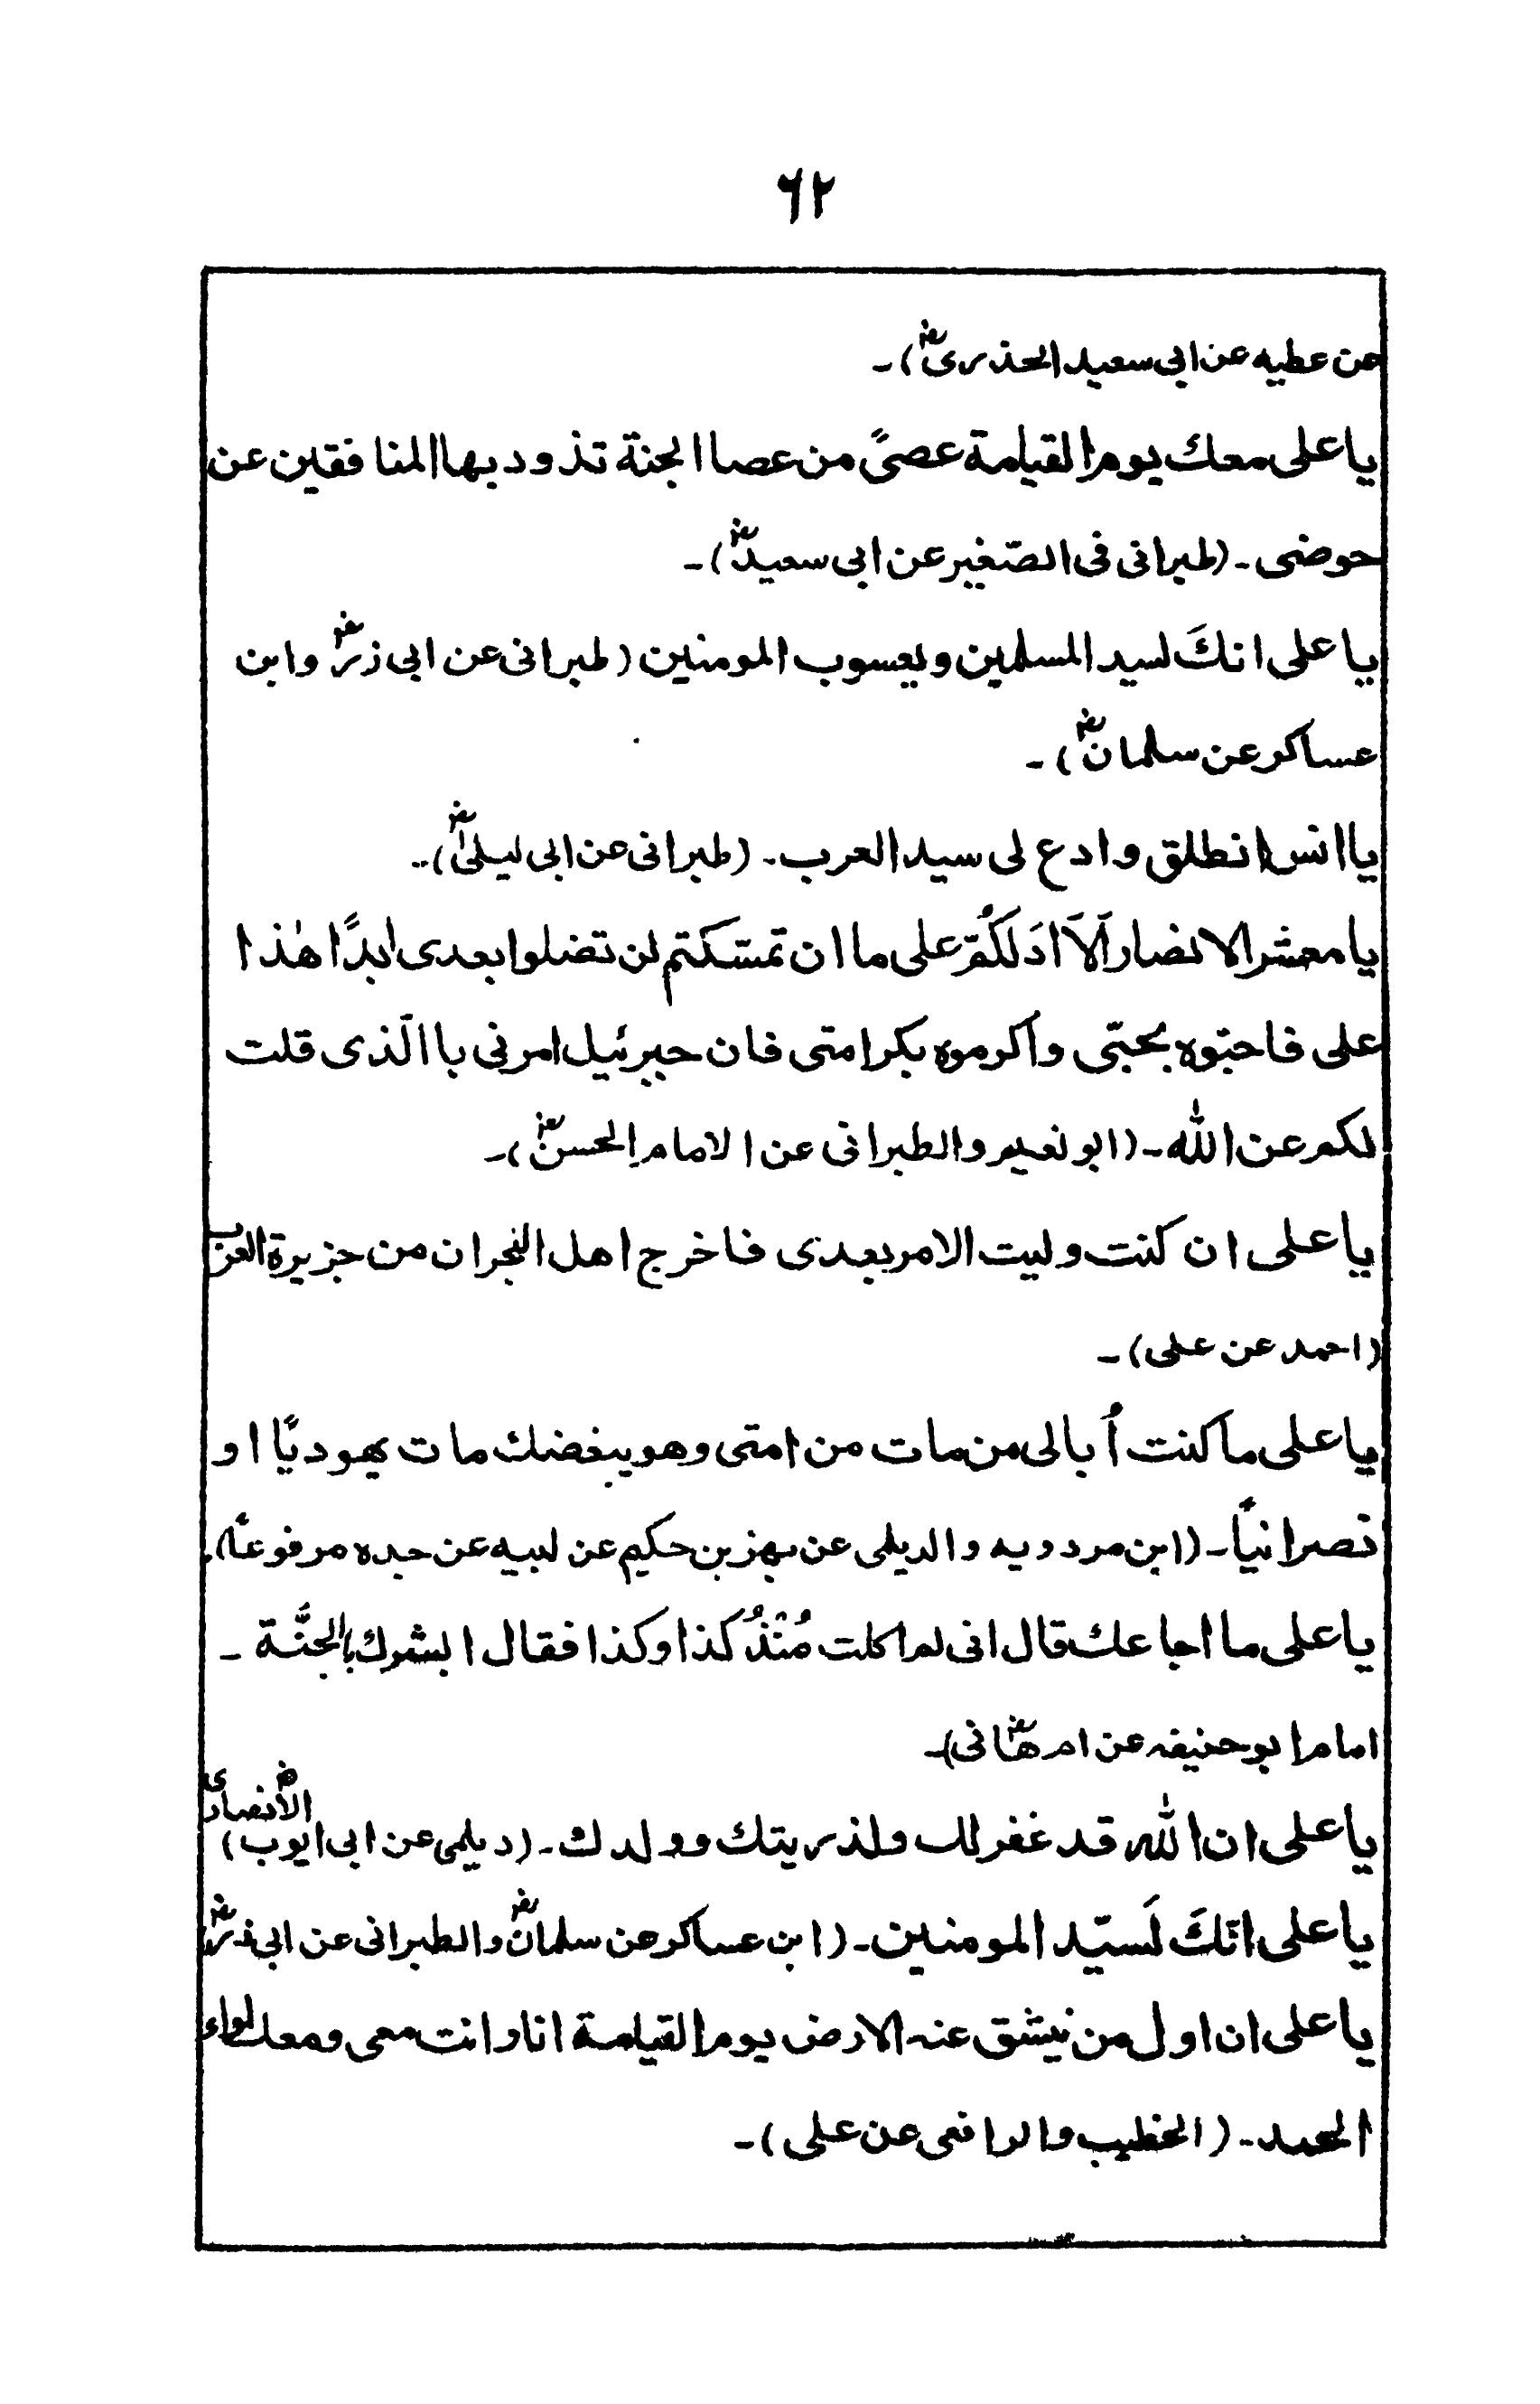 ۶۲
عن عطیه عن ابی سعید الحذریؓ)۔
یا علی معك یوم القیامة عصیً من عصا الجنة تذود بها المنافقین عن
حوضی۔ (طبرانی فی الصّغیر عن ابی سعیدؓ)۔
یا علی انكَ لسید المسلمین و یعسوب المومنین (طبرانی عن ابی ذرؓ وابن
عساکر عن سلمانؓ)۔
یا انس انطلق وادع لی سید العرب۔ (طبرانی عن ابی لیلیٰؓ)۔
یا معشر الانصار اَلاَ ادَلکُمْ علی ما ان تمسّکتم لن تضلوا بعدی ابدًا هٰذا
علی فاحبّوه بحبّی واکرموه بکرامتی فان جبرئیل امرنی باالّذی قلت
لکم عن اللّٰه۔ (ابو نعیم والطبرانی عن الامام الحسنؓ)۔
یا علی ان کنت ولیت الامر بعدی فاخرج اهل النجران من جزیرة العرب
(احمد عن علی)۔
یا علی ما کنت اُبالی من مات من امتی وهو یبغضك مات یهودیًا او
نصرانیًا۔ (ابن مردویه والدیلمی عن بهز بن حکیم عن ابیه عن جده مرفوعًا)۔
یا علی ما اجاعك قال انی لم اکلت مُنْذُ کذا وکذا فقال ابشرك بالجنَّة۔
امام ابو حنیفه عن ام هانیؓ)۔
یا علی ان اللّٰه قد غفر لك ولذریتك وولدك۔ (دیلمی عن ابی ایوب الانصاریؓ)
یا علی انّكَ لَسیّد المومنین۔ (ابن عساکر عن سلمانؓ والطبرانی عن ابی ذرؓ)
یا علی ان اول من نیشق عنه الارض یوم القیامة انا وانت معی ومعك لواء
الحمد۔ (الخطیب والرافعی عن علی)۔